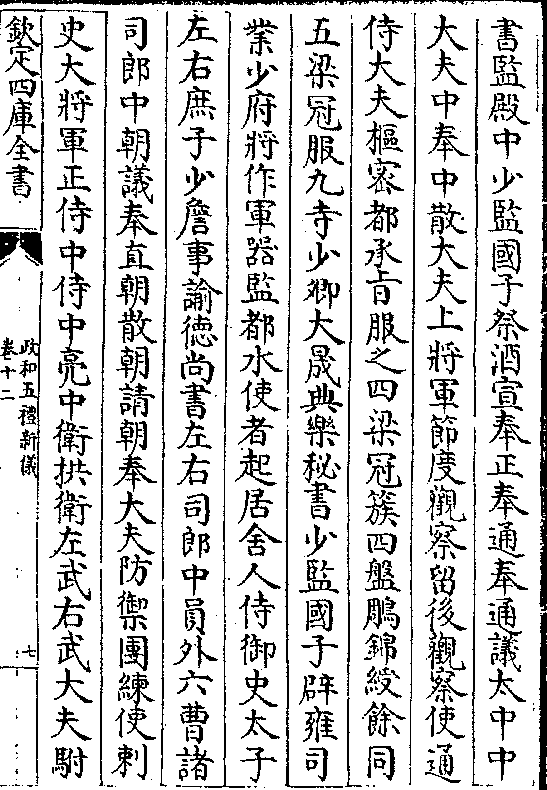 書監殿中少監國子祭酒宣奉正奉通奉通議太中中
大夫中奉中散大夫上將軍節度觀察留後觀察使通
侍大夫樞密都承旨服之四梁冠簇四盤鵰錦綬餘同
五梁冠服九寺少卿大晟典樂秘書少監國子辟雍司
業少府將作軍器監都水使者起居舍人侍御史太子
左右庶子少詹事諭徳尚書左右司郎中員外六曹諸
司郎中朝議奉直朝散朝請朝奉大夫防禦團練使刺
史大將軍正侍中侍中亮中衛拱衛左武右武大夫駙
欽定四庫全書
政和五禮新儀
卷十二
七